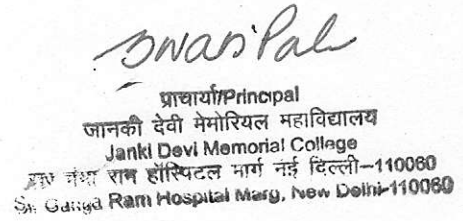 Swati Pal
प्राचार्या/Principal
जानकी देवी मेमोरियल महाविद्यालय
Janki Devi Memorial College
राम हॉस्पिटल मार्ग नई दिल्ली-110060
Sir Ganga Ram Hospital Marg, New Delhi-110060